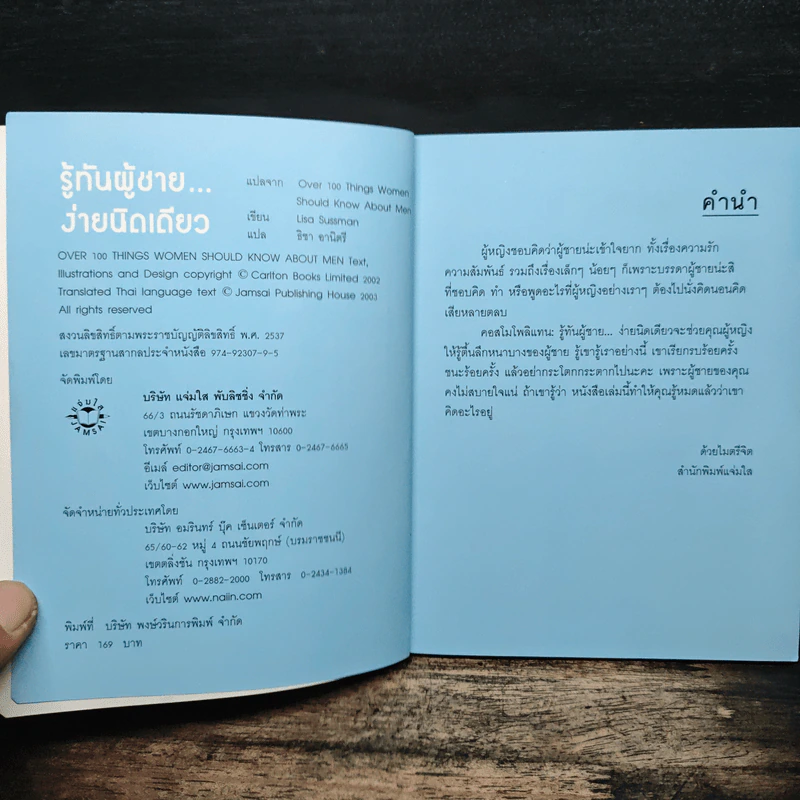 รู้ทันผู้ชาย...
ง่ายนิดเดียว
แปลจาก Over 100 Things Women
Should Know About Men
เขียน Lisa Sussman
แปล ธิชา อานิตรี
OVER 100 THINGS WOMEN SHOULD KNOW ABOUT MEN Text,
Illustrations and Design copyright © Carlton Books Limited 2002
Translated Thai language text © Jamsai Publishing House 2003
All rights reserved
สงวนลิขสิทธิ์ตามพระราชบัญญัติลิขสิทธิ์ พ.ศ. 2537
เลขมาตรฐานสากลประจำหนังสือ 974-92307-9-5
จัดพิมพ์โดย
แจ่มใส
JAMSAI
บริษัท แจ่มใส พับลิชชิ่ง จำกัด
66/3 ถนนรัชดาภิเษก แขวงวัดท่าพระ
เขตบางกอกใหญ่ กรุงเทพฯ 10600
โทรศัพท์ 0-2467-6663-4 โทรสาร 0-2467-6665
อีเมล์ editor@jamsai.com
เว็บไซต์ www.jamsai.com
จัดจำหน่ายทั่วประเทศโดย
บริษัท อมรินทร์ บุ๊ค เซ็นเตอร์ จำกัด
65/60-62 หมู่ 4 ถนนชัยพฤกษ์ (บรมราชชนนี)
เขตตลิ่งชัน กรุงเทพฯ 10170
โทรศัพท์ 0-2882-2000 โทรสาร 0-2434-1384
เว็บไซต์ www.naiin.com
พิมพ์ที่ บริษัท พงษ์วรินการพิมพ์ จำกัด
ราคา 169 บาท
คำนำ
ผู้หญิงชอบคิดว่าผู้ชายน่ะเข้าใจยาก ทั้งเรื่องความรัก
ความสัมพันธ์ รวมถึงเรื่องเล็กๆ น้อยๆ ก็เพราะบรรดาผู้ชายน่ะสิ
ที่ชอบคิด ทำ หรือพูดอะไรที่ผู้หญิงอย่างเราๆ ต้องไปนั่งคิดนอนคิด
เสียหลายตลบ
คอสโมโพลิแทน: รู้ทันผู้ชาย... ง่ายนิดเดียวจะช่วยคุณผู้หญิง
ให้รู้ตื้นลึกหนาบางของผู้ชาย รู้เขารู้เราอย่างนี้ เขาเรียกรบร้อยครั้ง
ชนะร้อยครั้ง แล้วอย่ากระโตกกระตากไปนะคะ เพราะผู้ชายของคุณ
คงไม่สบายใจแน่ ถ้าเขารู้ว่า หนังสือเล่มนี้ทำให้คุณรู้หมดแล้วว่าเขา
คิดอะไรอยู่
ด้วยไมตรีจิต
สำนักพิมพ์แจ่มใส